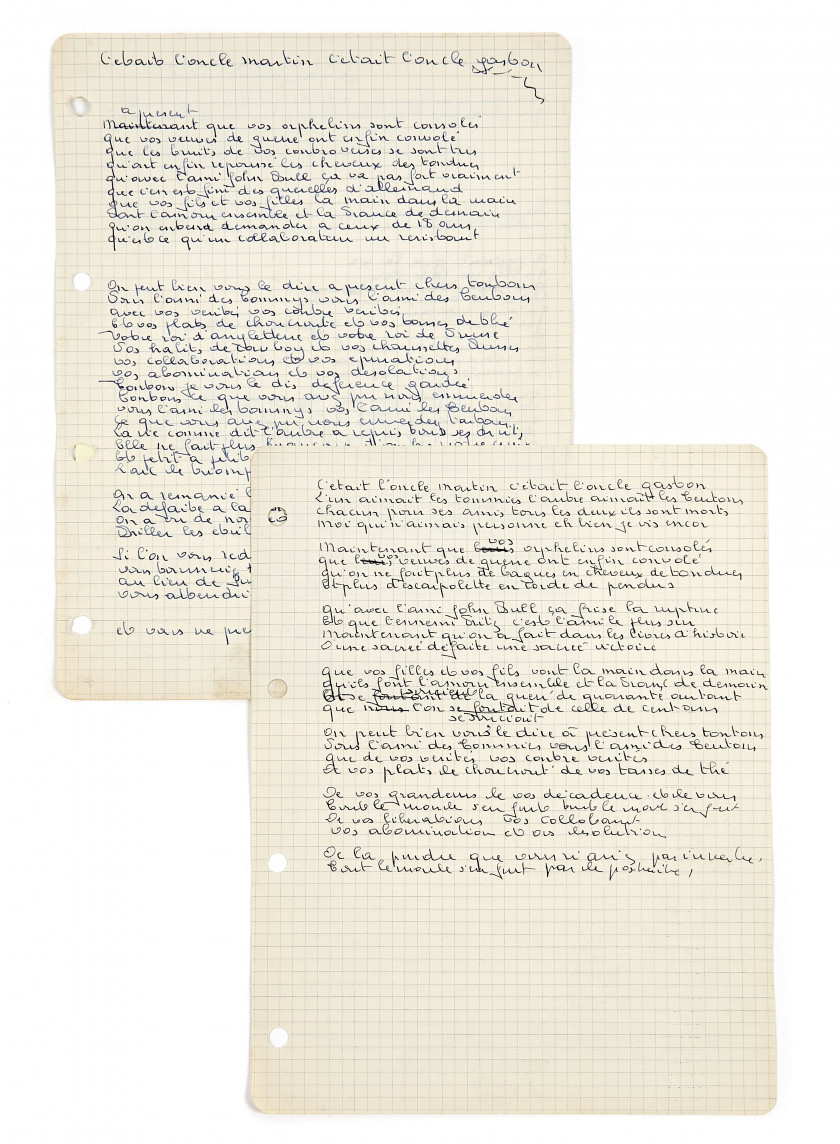 C'etait l'oncle martin c'était l'oncle gaston
a present
Maintenant que vos orphelins sont consolés
que vos veuves de guerre ont enfin convolé
que les bruits de vos controverses se sont tus
qu'ont enfin repoussé les cheveux des tondues
qu'avec l'ami John Bull ça va pas fort vraiment
que c'en est fini des querelles d'allemand
que vos fils et vos filles la main dans la main
font l'amour ensemble et la France de demain
qu'on entend demander a ceux de 18 ans
qu'est ce qu'un collaborateur un resistant
On peut bien vous le dire a present chers tontons
Vous l'ami des tommys vous l'ami des teutons
avec vos verités vos contre verités
Et vos plats de choucroute et vos tasses de thé
Votre roi d'angleterre et votre roi de Prusse
Vos habits de cow boy et vos chaussettes russes
vos collaborations et vos epurations
vos abominations et vos desolations
Tontons je vous le dis deference gardée
tontons ce que vous avez pu nous emmerder
vous l'ami les tommys vous l'ami les teutons
Ce que vous avez pu nous emmerder tontons
La vie comme dit l'autre a repris tous ses droits
Elle ne fait plus
Et petit a petit
L'arc de triomp
On a remanié l
La défaite a la
On a vu de nos
Briller les étoil
Si l'on vous red
vous
au lieu de
vous attendri
et vous ne
C'etait l'oncle martin c'etait l'oncle gaston
L'un aimait les tommies l'autre aimait les teutons
Chacun pour ses amis tous les deux ils sont morts
Moi qui n'aimais personne eh bien je vis encor
vos
Maintenant que leurs orphelins sont consolés
vos
que leurs veuves de guerre ont enfin convolé
qu'on ne fait plus de bagues en cheveux de tondues
Et plus d'escarpolette en corde de pendus
Qu'avec l'ami John Bull ça frise la rupture
Et que l'ennemi Fritz c'est l'ami le plus sur
Maintenant qu'on a fait dans les livres d'histoire
D'une sacré défaite une sacré victoire
que vos filles et vos fils vont la main dans la main
qu'ils font l'amour ensemble et la Franc' de demain
soucient
Et se foutent de la guerr' de quarante autant
que nous l'on se foutait de celle de cent ans
se souciait
On peut bien vous le dire à present chers tontons
Vous l'ami des tommies vous l'ami des teutons
que de vos verités vos contre verités
De vos plats de choucrout' de vos tasses de thé
De vos grandeurs de vos décadence et de vous
tout le monde s'en fout tout le mond' s'en fout
De vos liberations vos collaborat
vos abomination et vos desolution
De la poudre que vous n'aviez pas inventée,
tout le monde s'en fout